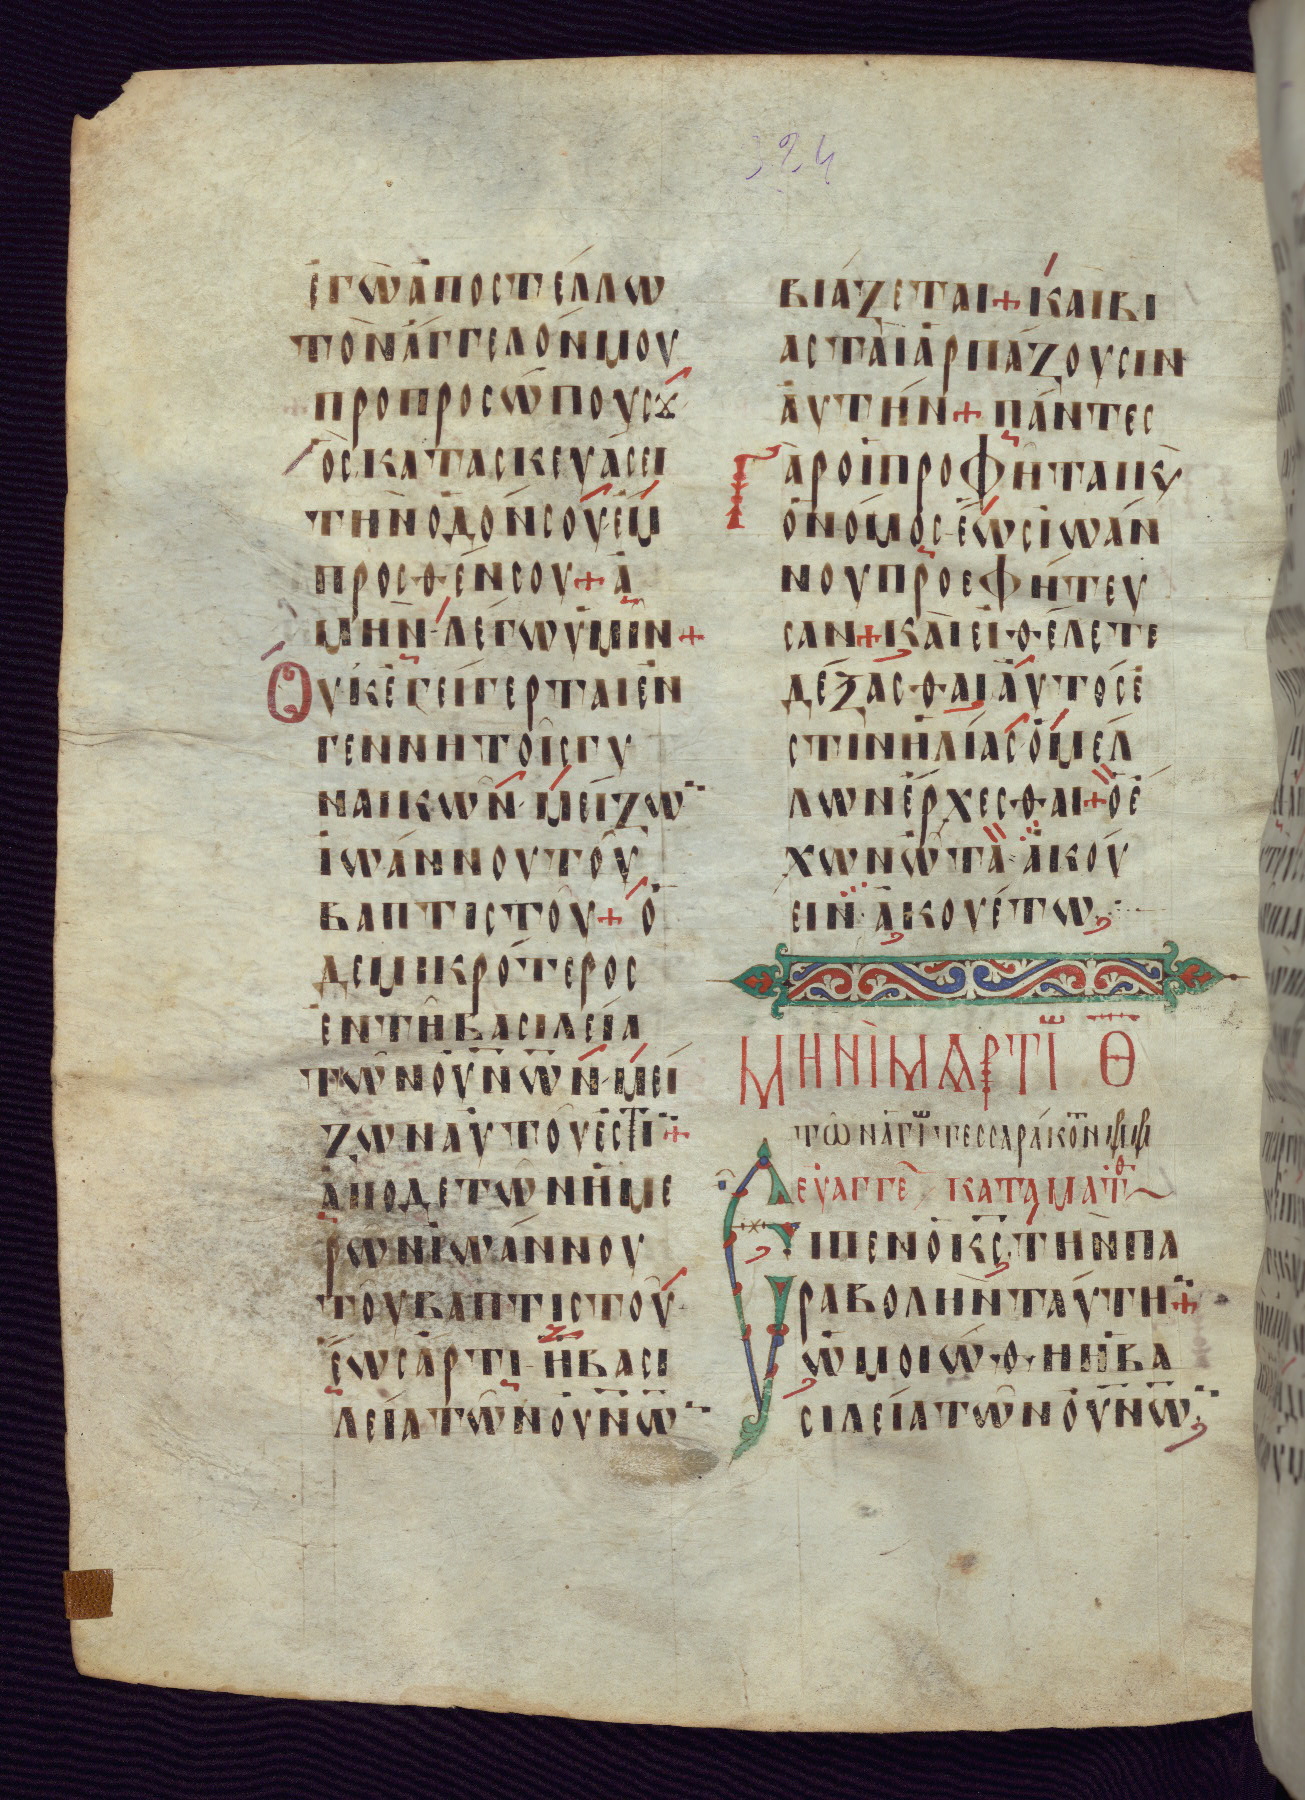 324
ἐγὼ ἀποστέλλω
τὸν ἄγγελόν μου
πρὸ προσώπου σȣ
ὃς κατασκευάσει
τὴν ὁδόν σου ἔμ
προσθέν σου + ἀ
μὴν λέγω ὑμῖν +
Οὐκ ἐγείγερται ἐν
γεννητοῖς γυ
ναικῶν μείζω̈
ἰωάννου τοῦ
βαπτιστοῦ + ὁ
δε μικρότερος
ἐν τῆ βασιλεία
τῶν οὐνῶν μεί
ζων αὐτοῦ ἐστϊ +
ἀπο δε τῶν ἡμε
ρων ἰωάννου
τοῦ βαπτιστοῦ
ἕως ἄρτι ἡ βασι
λεία τῶν οὐνῶ̈
βιάζεται + καὶ βι
ασταὶ ἁρπάζουσιν
ἀυτήν + πάντες
Γὰρ οἱ προφῆται κ,
ὁ νόμος ἕως ἰωάν
νου προεφήτευ
σαν + καὶ εἰ θέλετε
δέξασθαι ἀυτός ἐ
στιν ἡλίας ὁ μέλ
λων ἔρχεσθαι + ὁ ἔ
χων ὦτα ἀκού
ειν ἀκουέτω
ΜΗΝῚ ΜΑΡΤΊω Θ̄
τῶν ἁγί τεσσαράκον μμ
ευαγγε κατα ματθ
Ειπεν ὁ κς̄ τὴν πα
ραβολὴν ταύτη̈ +
ὡμοιώθη ἡ βα
σιλεία τῶν οὐνῶ̈